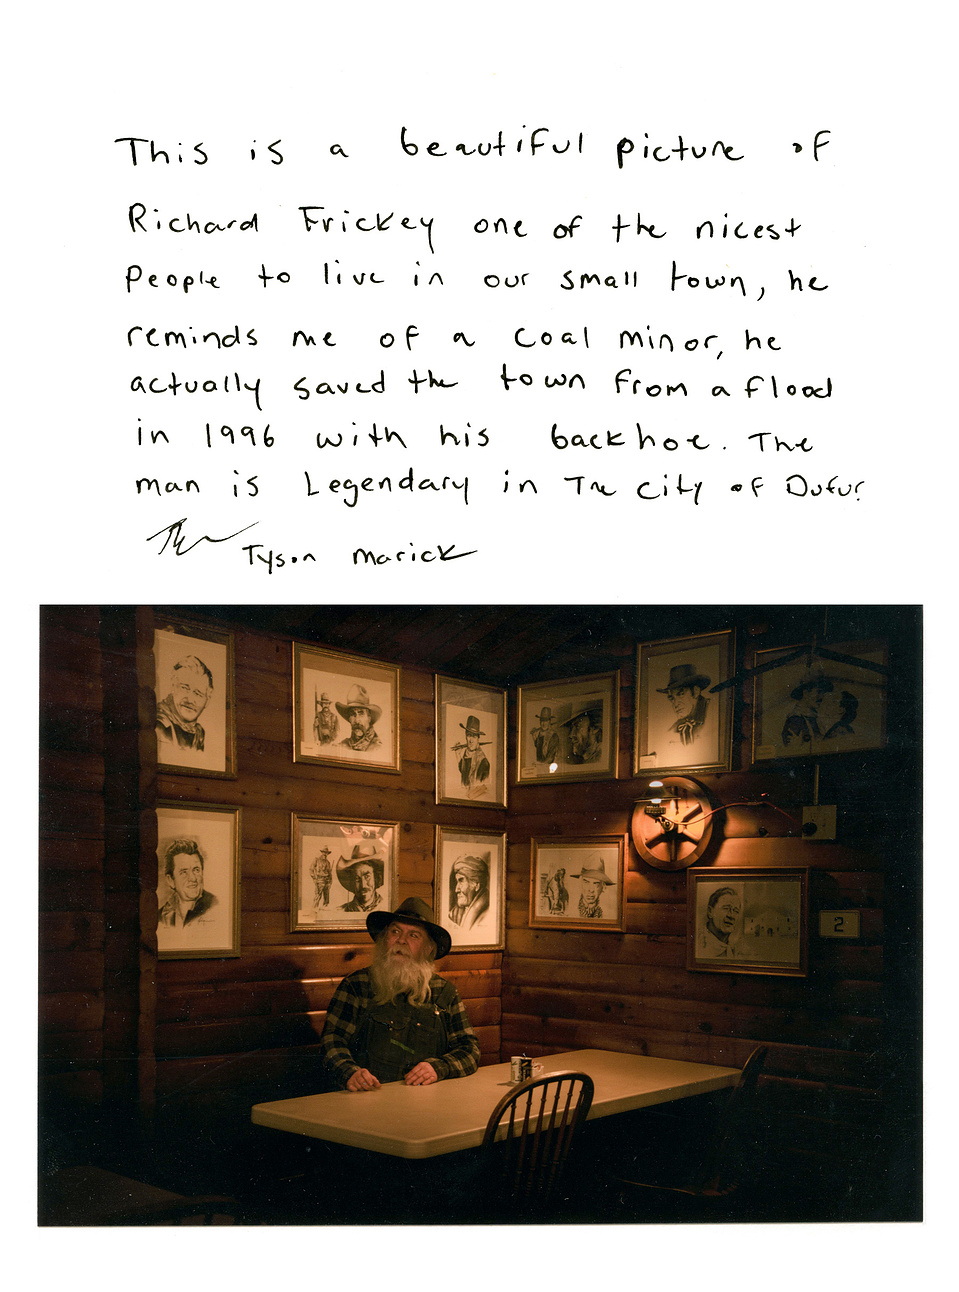 This is a beautiful picture of
Richard Frickey one of the nicest
People to live in our small town, he
reminds me of a coal minor, he
actually saved the town from a flood
in 1996 with his backhoe. The
man is Legendary in The City of Dufur
Tyson Marick
2